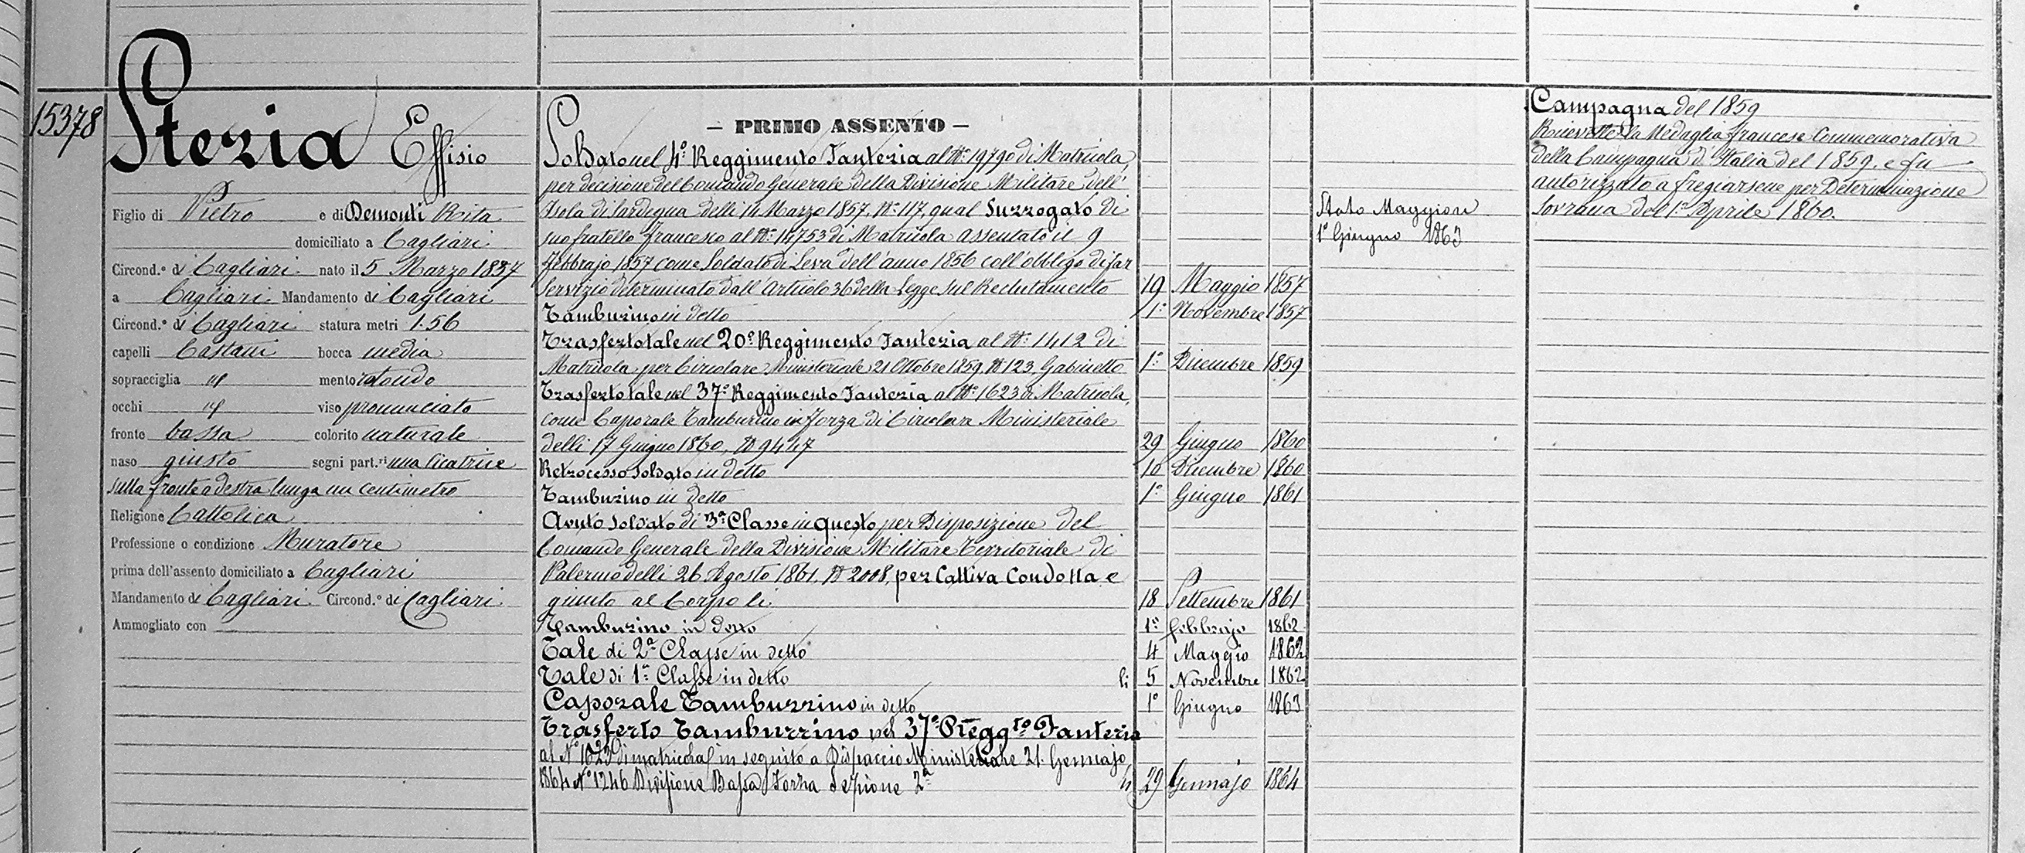 15378
Steria Effisio
Figlio di Pietro e di Demonti Rita
domiciliato a Cagliari
Circond.º di Cagliari nato il 5 Marzo 1837
a Cagliari Mandamento di Cagliari
Circond.º di Cagliari statura metri 1.56
capelli Castani bocca media
sopracciglia id mento rotondo
occhi id viso pronunciato
fronte bassa colorito naturale
naso giusto segni part.ri una Cicatrice
sulla fronte a destra lunga un centimetro
Religione Cattolica
Professione o condizione Muratore
prima dell'assento domiciliato a Cagliari
Mandamento di Cagliari Circond.º di Cagliari
Ammogliato con
— PRIMO ASSENTO —
Soldato nel 4º Reggimento Fanteria al Nº 19790 di Matricola,
per decisione del Comando Generale della Divisione Militare dell'
Isola di Sardegna delli 14 Marzo 1857, Nº 117, qual Surrogato di
suo fratello Francesco al Nº 14753 di Matricola assentato il 9
Febbrajo 1857 come Soldato di Leva dell'anno 1856 coll'obbligo di far
Servizio determinato dall'Articolo 36 della Legge sul Reclutamento 19 Maggio 1857
Tamburino in detto 1º Novembre 1857
Trasferto tale nel 20º Reggimento Fanteria al Nº 1412 di
Matricola per Circolare Ministeriale 21 Ottobre 1859, Nº 123, Gabinetto 1º Dicembre 1859
Trasferto tale nel 37º Reggimento Fanteria al Nº 1623 di Matricola,
come Caporale Tamburino in forza di Circolare Ministeriale
delli 17 Giugno 1860, Nº 9447 29 Giugno 1860
Retrocesso Soldato in detto 10 Dicembre 1860
Tamburino in detto 1º Giugno 1861
Avuto Soldato di 3ª Classe in questo per Disposizione del
Comando Generale della Divisione Militare Territoriale di
Palermo delli 26 Agosto 1861, Nº 2008, per Cattiva Condotta e
giunto al Corpo li 18 Settembre 1861
Tamburino in detto 1º Febbrajo 1862
Tale di 2ª Classe in detto 4 Maggio 1862
Tale di 1ª Classe in detto li 5 Novembre 1862
Caporale Tamburrino in detto 1º Giugno 1863
Trasferto Tamburrino nel 37º Regg.to Fanteria
al Nº 1623 di matricola in seguito a Dispaccio Ministeriale 21 Gennajo
1864 Nº 1246 Divisione Bassa Forza Sezione 2ª li 29 Gennajo 1864
Stato Maggiore
1º Giugno 1863
Campagna del 1859
Ricevette la Medaglia francese Commemorativa
della Campagna d'Italia del 1859, e fu
autorizzato a fregiarsene per Determinazione
Sovrana del 1º Aprile 1860.